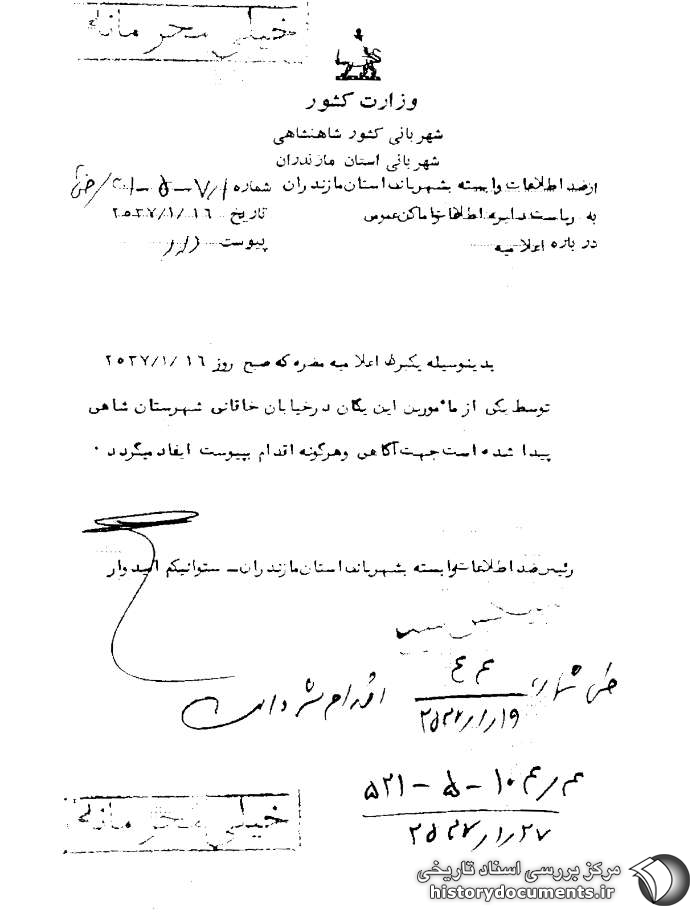 خیلی محرمانه
وزارت کشور
شهربانی کشور شاهنشاهی
شهربانی استان مازندران
از ضد اطلاعات وابسته بشهربانی استان مازندران شماره
به ریاست دایره اطلاعات و اماکن عمومی تاریخ ۲۵۳۷/۱/۱۶
در باره اعلامیه پیوست دارد
بدینوسیله یکبرگ اعلامیه مضره که صبح روز ۲۵۳۷/۱/۱۶
توسط یکی از مأمورین این یگان در خیابان خاقانی شهرستان شاهی
پیدا شده است جهت آگاهی و هرگونه اقدام بپیوست ایفاد میگردد ۰
رئیس ضد اطلاعات وابسته بشهربانی استان مازندران ـ ستوانیکم امیدوار
طی شماره اقدام شده است
۲۵۳۷/۱/۱۹
۵۲۱ - ۵ - ۱۰
۲۵۳۷/۱/۲۷
خیلی محرمانه
مرکز بررسی اسناد تاریخی
historydocuments.ir